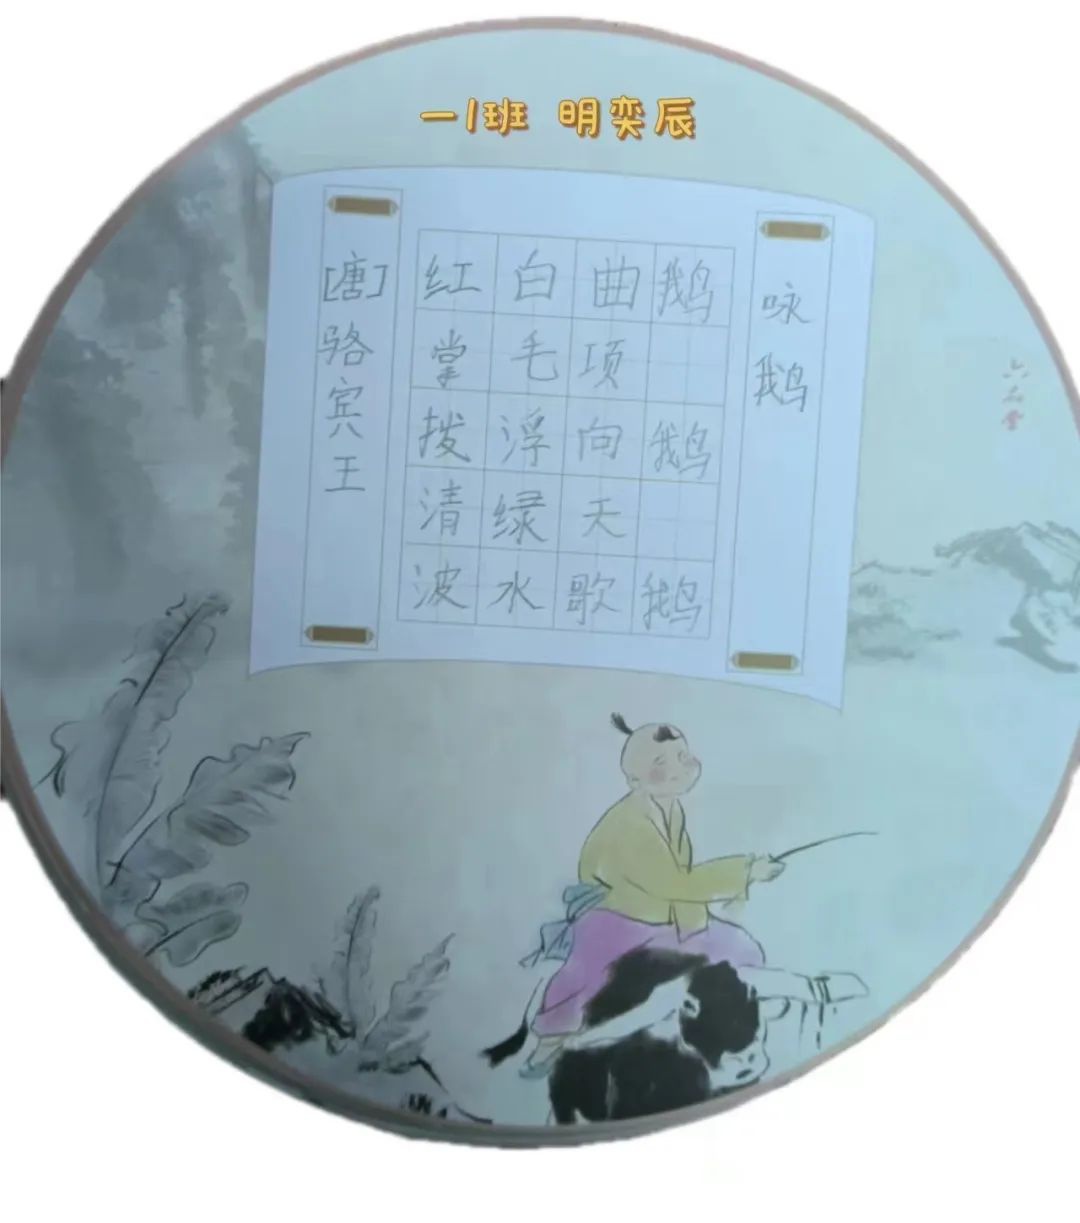 一1班 明奕辰
咏鹅
鹅 鹅 鹅
曲项向天歌
白毛浮绿水
红掌拨清波
[唐]骆宾王